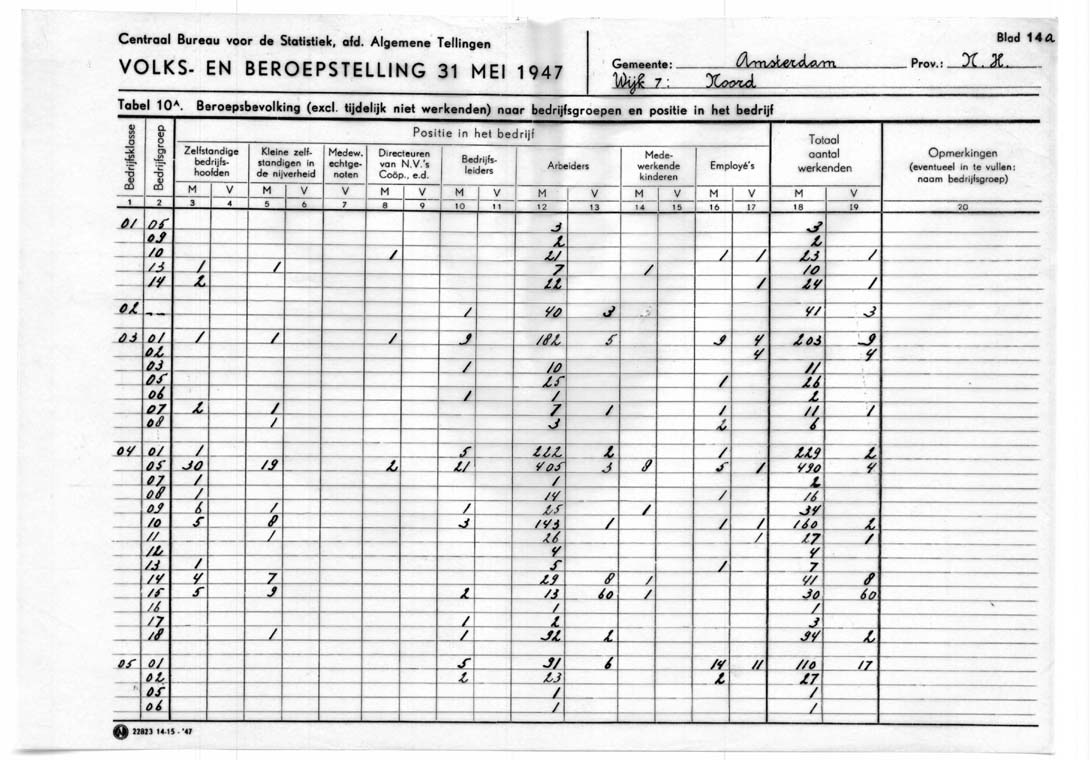 Centraal Bureau voor de Statistiek, afd. Algemene Tellingen
Blad 14a
VOLKS- EN BEROEPSTELLING 31 MEI 1947
Gemeente: Amsterdam Prov.: N. H.
Wijk 7: Noord
Tabel 10A. Beroepsbevolking (excl. tijdelijk niet werkenden) naar bedrijfsgroepen en positie in het bedrijf
Bedrijfsklasse
Bedrijfsgroep
Positie in het bedrijf
Zelfstandige bedrijfs-hoofden
Kleine zelf-standigen in de nijverheid
Medew. echtge-noten
Directeuren van N.V.'s Coöp., e.d.
Bedrijfs-leiders
Arbeiders
Mede-werkende kinderen
Employé's
Totaal aantal werkenden
Opmerkingen (eventueel in te vullen: naam bedrijfsgroep)
M V M V V M V M V M V M V M V M V
1 2 3 4 5 6 7 8 9 10 11 12 13 14 15 16 17 18 19 20
01 05 3 3
09 2 2
10 1 21 1 1 23 1
13 1 1 7 1 10
14 2 22 1 24 1
02 -- 1 40 3 41 3
03 01 1 1 1 9 182 5 9 4 203 9
02 4 4
03 1 10 11
05 25 1 26
06 1 1 2
07 2 1 7 1 1 11 1
08 1 3 2 6
04 01 1 5 222 2 1 229 2
05 30 19 2 21 405 3 8 5 1 490 4
07 1 1 2
08 1 14 1 16
09 6 1 1 25 1 34
10 5 8 3 143 1 1 1 160 2
11 1 26 1 27 1
12 4 4
13 1 5 1 7
14 4 7 29 8 1 41 8
15 5 9 2 13 60 1 30 60
16 1 1
17 1 2 3
18 1 1 92 2 94 2
05 01 5 91 6 14 11 110 17
02 2 23 2 27
05 1 1
06 1 1
22823 14-15 - '47